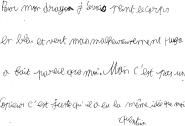 Pour mon dragon j'avais peint le corps
en bleu et vert mais malheureusement Hugo
a fait pareil que moi. Mon c'est pas un
copieur c'est juste qu'il a eu la même idée que moi
Quentin